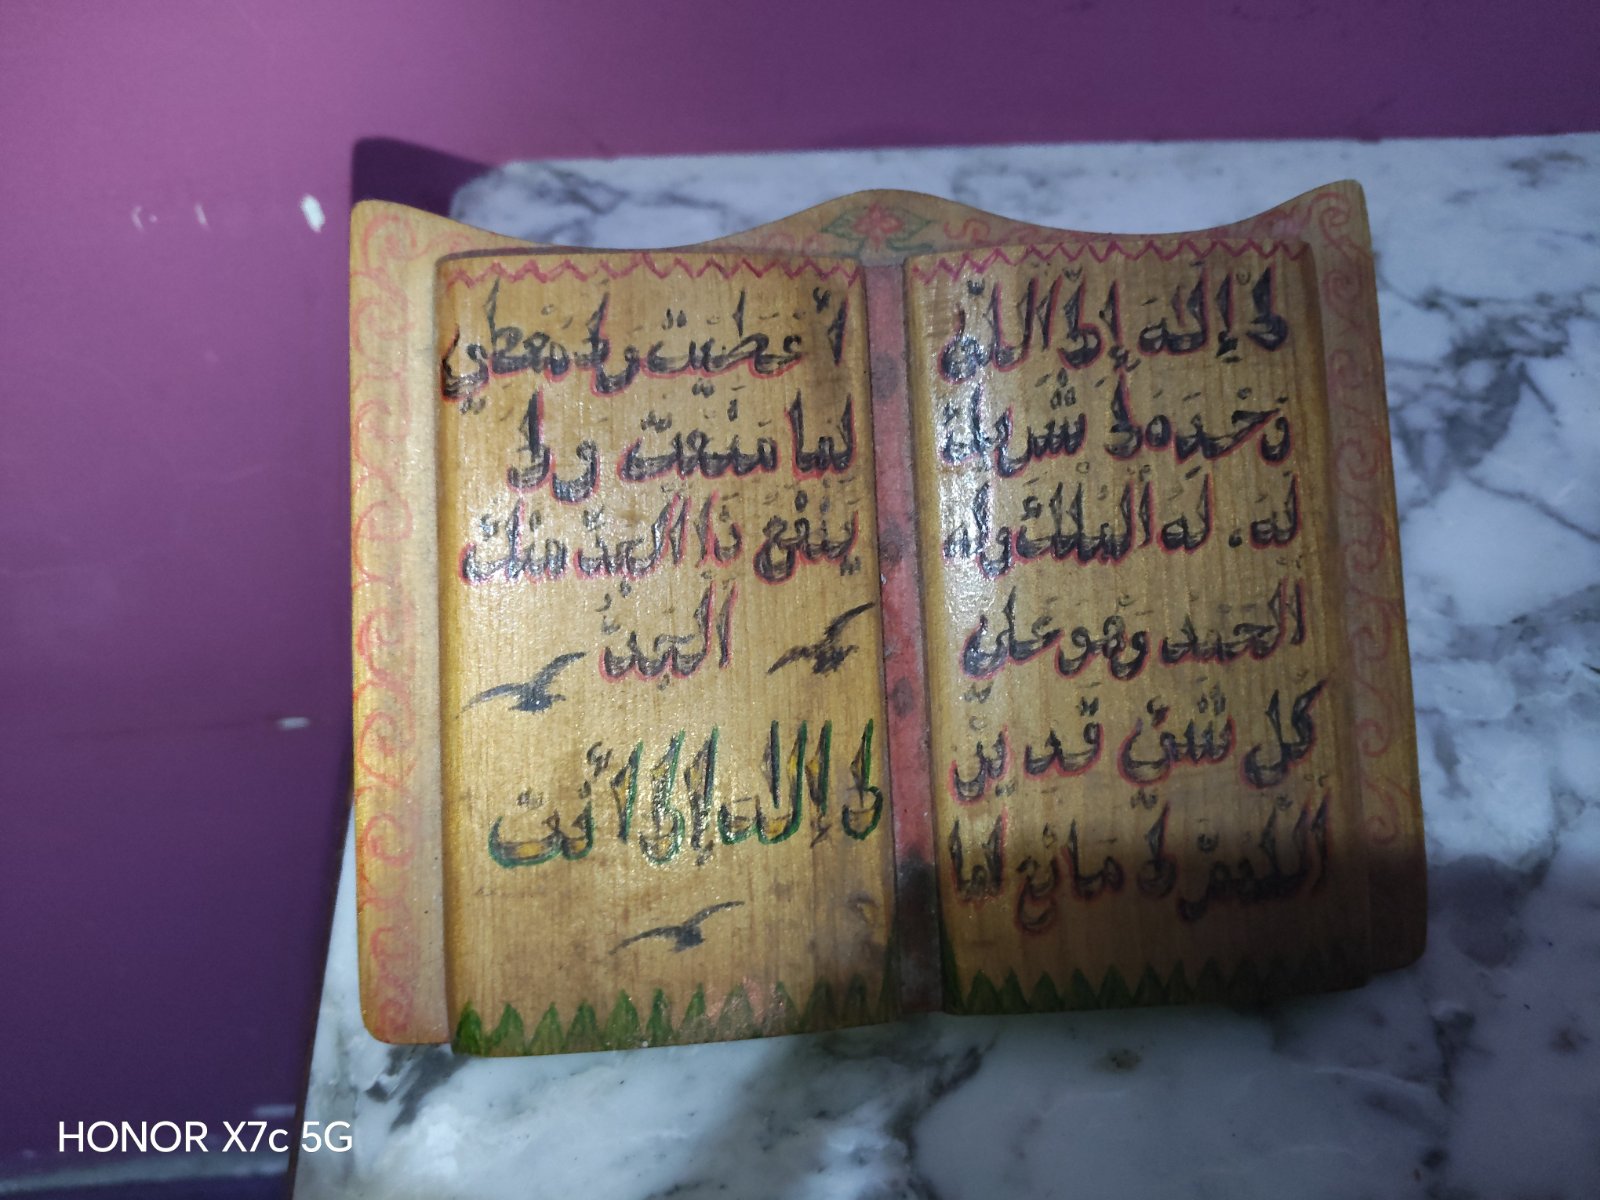 لا إله إلا الله
وحده لا شريك
له. له الملك وله
الحمد وهو على
كل شئ قدير
اللهم لا مانع لما
أعطيت ولا معطي
لما منعت ولا
ينفع ذا الجد منك
الجد
لا إله إلا أنت
HONOR X7c 5G